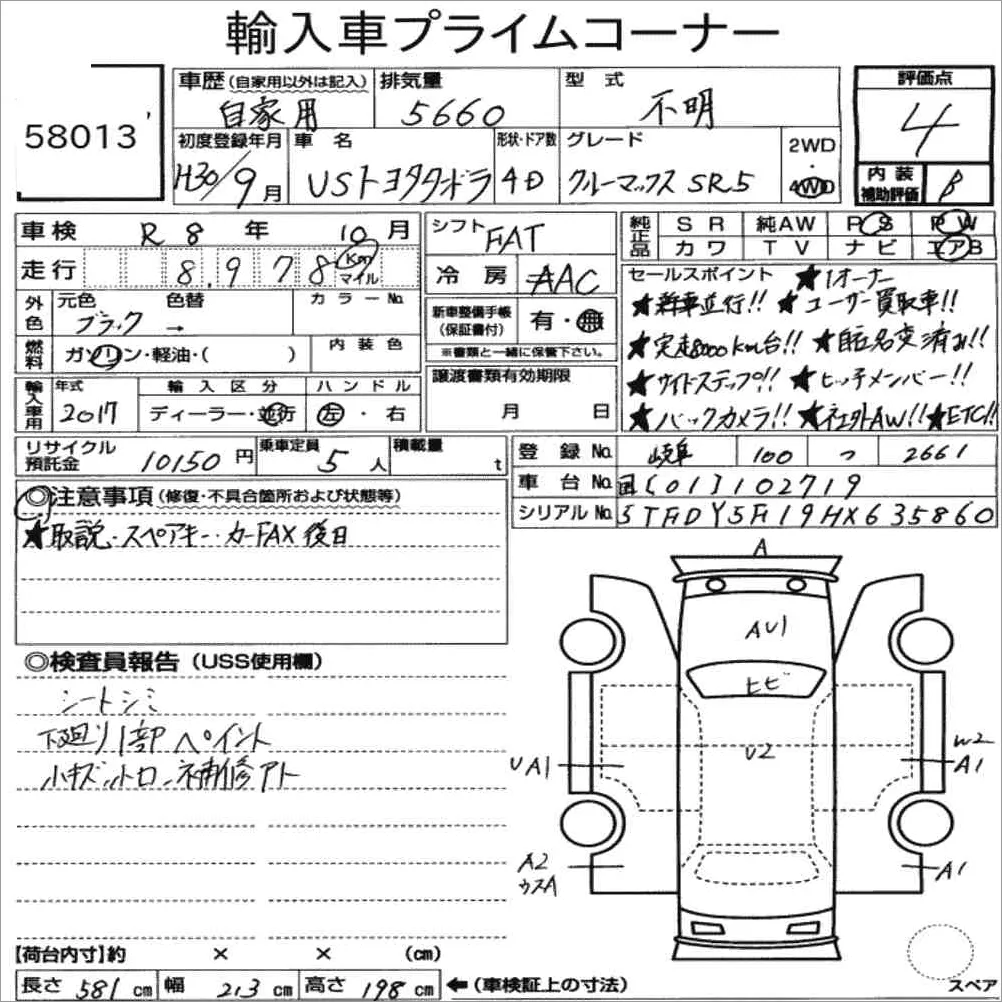 輸入車プライムコーナー
58013
車歴(自家用以外は記入) 自家用
排気量 5660
型式 不明
評価点 4
初度登録年月 H30/9月
車名 USトヨタタンドラ
形状・ドア数 4D
グレード クルーマックス SR5
2WD・4WD
内装補助評価 B
車検 R 8 年 10 月
シフト FAT
純正品 SR 純AW PS PW
カワ TV ナビ エアB
走行 8.978 Km マイル
冷房 AAC
セールスポイント ★1オーナー
★新車並行!! ★ユーザー買取車!!
★実走8000km台!! ★自E名変済み!!
★サイドステップ!! ★ヒッチメンバー!!
★バックカメラ!! ★社外AW!! ★ETC!!
外色 元色 ブラック 色替 → カラーNo.
新車整備手帳(保証書付) 有・無
※書類と一緒に保管下さい。
燃料 ガソリン・軽油・( ) 内装色
譲渡書類有効期限 月 日
輸入車用 年式 2017 輸入区分 ディーラー・並行 ハンドル 左・右
リサイクル預託金 10150円 乗車定員 5人 積載量 t
登録No. 岐阜 100 つ 2661
車台No. 国[01]102719
シリアルNo. 5TFDY5F19HX635860
◎注意事項(修復・不具合箇所および状態等)
★取説・スペアキー・カーFAX後日
◎検査員報告(USS使用欄)
シートシミ
下廻り1部ペイント
小キズ 補修アト
A
AU1
ヒビ
U2
UA1
W2
A1
A2
ウスA
A1
スペア
【荷台内寸】約 × × (cm)
長さ 581 cm 幅 213 cm 高さ 198 cm ←(車検証上の寸法)